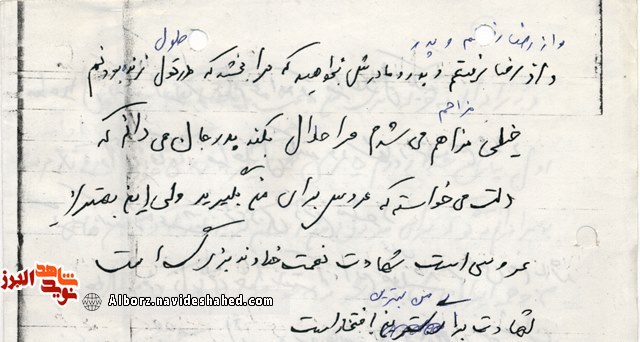 و از رضا و پدر
طول
و از رضا و پدر و مادرش بخواهید که مرا ببخشد که در طول زنده بودنم
مزاحم
خیلی مزاحم می شدم مرا حلال بکند پدر جان می دانم که
دلت می خواسته که عروس برای من بگیرید ولی این بهتر از
عروسی است شهادت نعمت خداوند بزرگ است
من بهترین
شهادت برای افتخار است
شاهد
نوید
البرز
Alborz.navideshahed.com